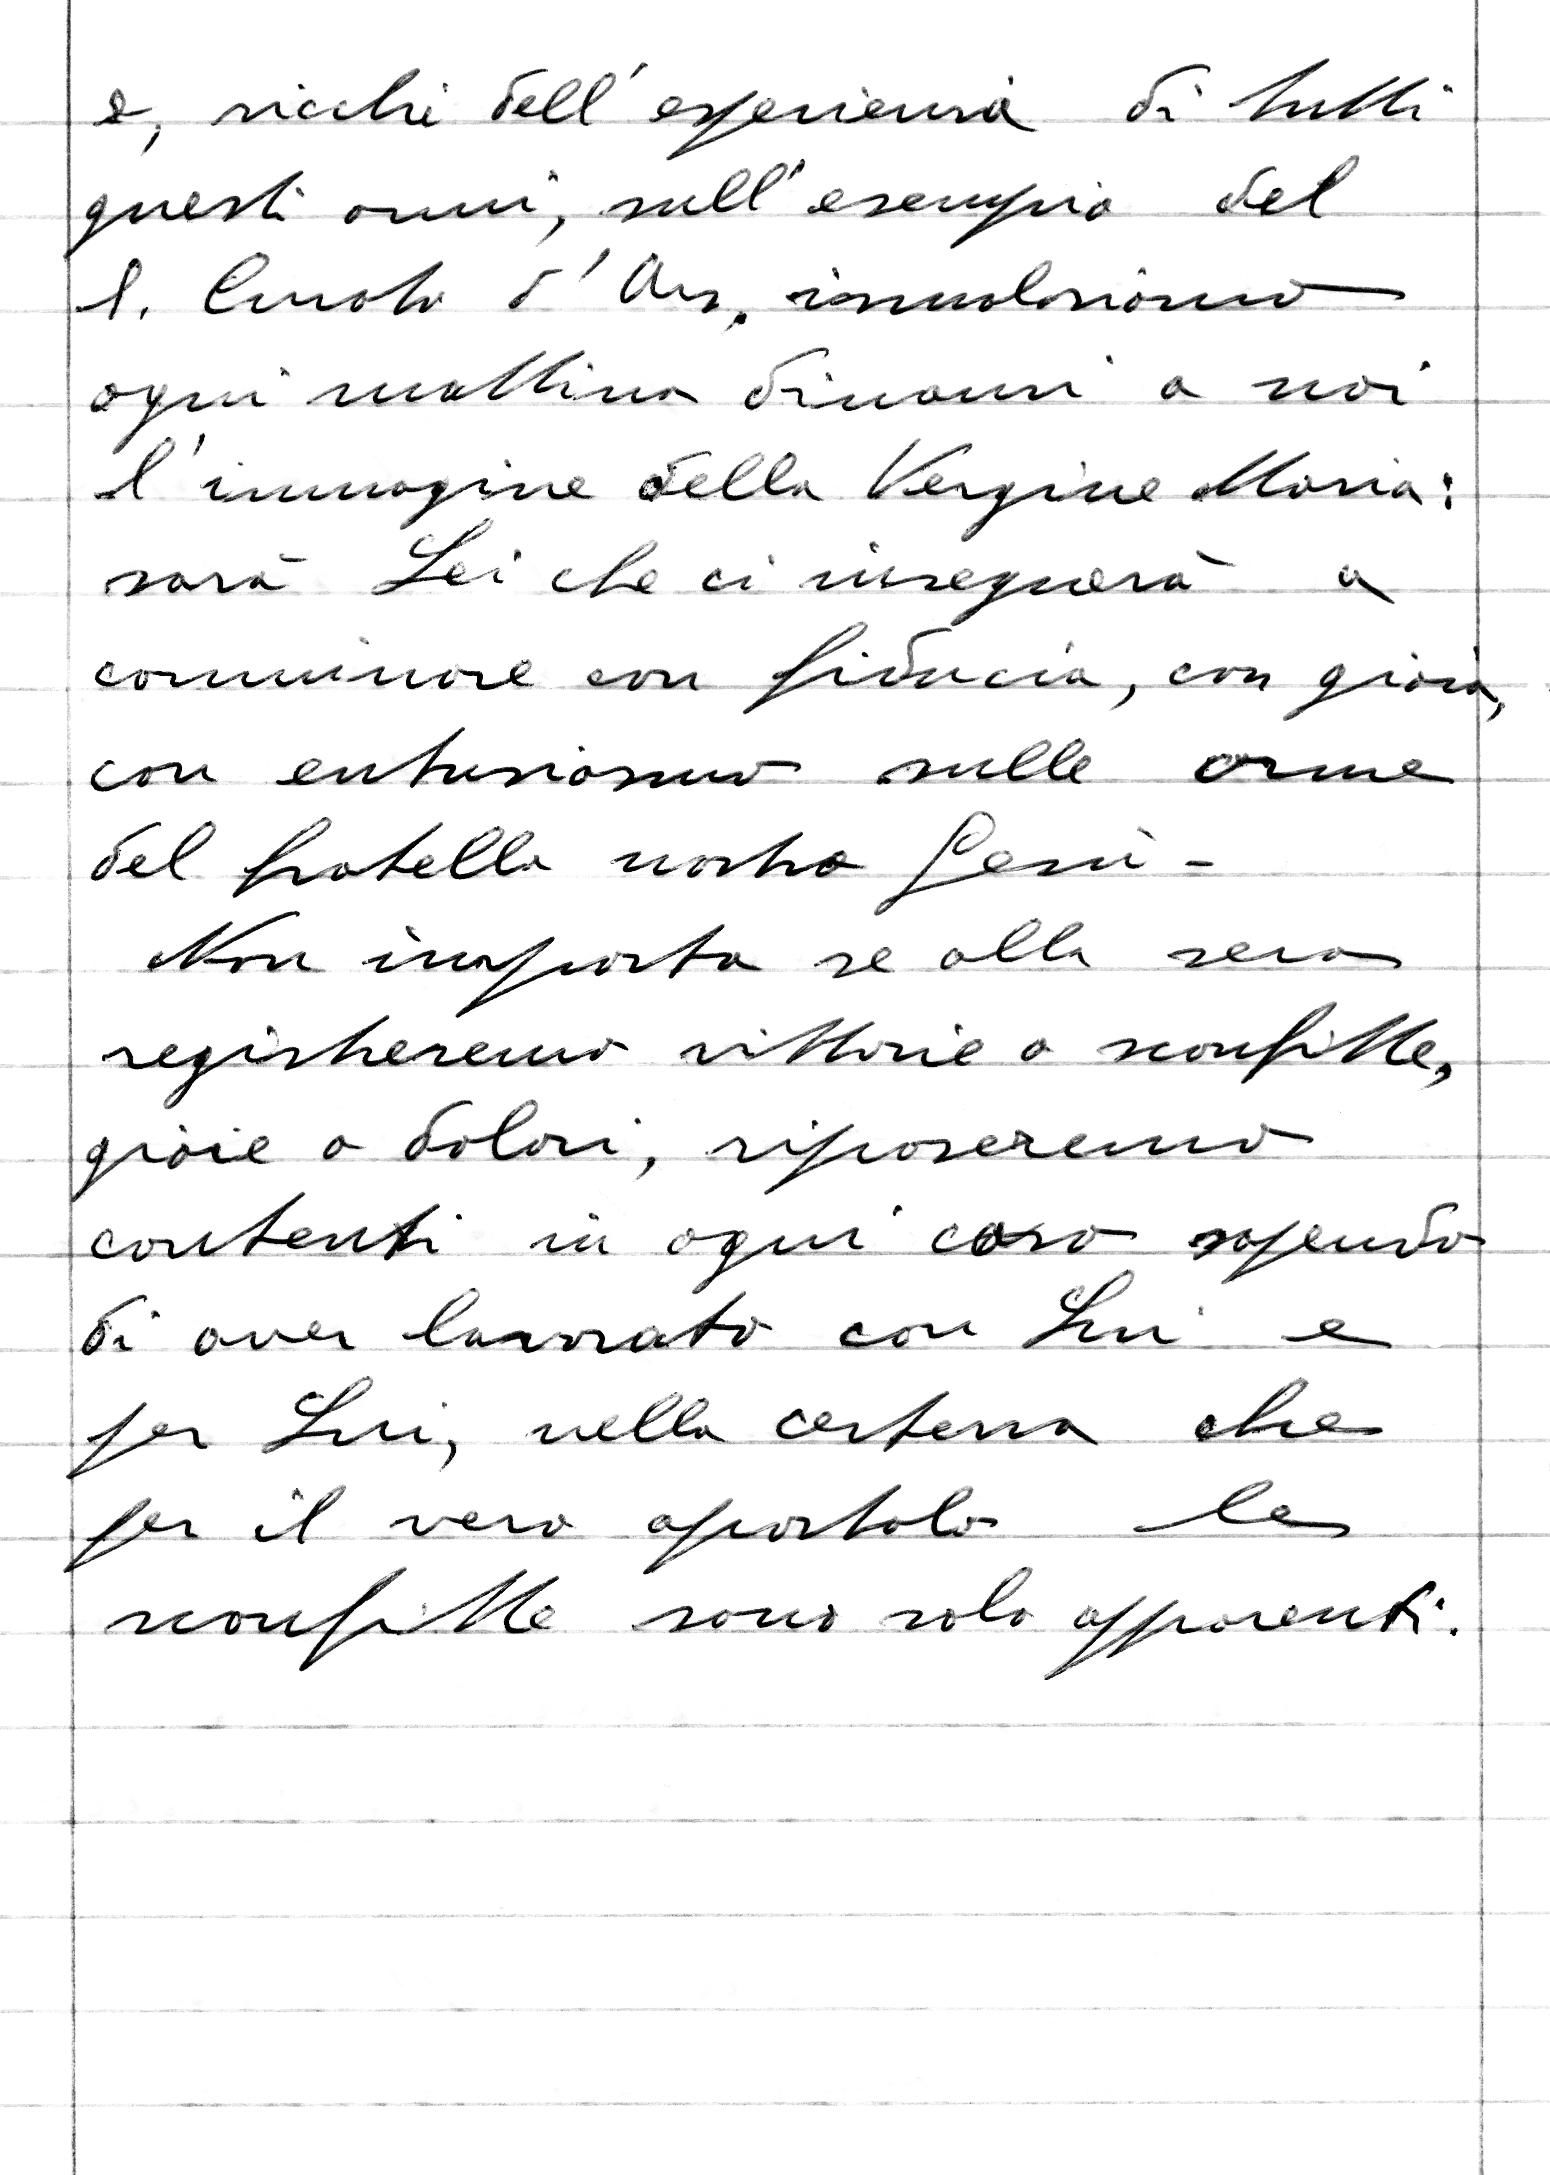 e, ricchi dell'esperienza di tutti
questi anni, sull'esempio del
S. Curato d'Ars, innalziamo
ogni mattina dinanzi a noi
l'immagine della Vergine Maria:
sarà Lei che ci insegnerà a
camminare con fiducia, con gioia,
con entusiasmo sulle orme
del fratello nostro Gesù -
Non importa se alla sera
registreremo vittorie o sconfitte,
gioie o dolori, riposeremo
contenti in ogni caso sapendo
di aver lavorato con Lui e
per Lui, nella certezza che
per il vero apostolo le
sconfitte sono solo apparenti.